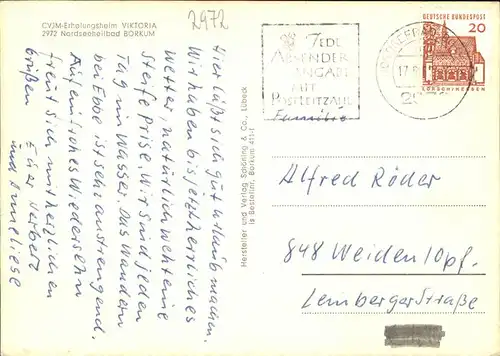 CVJM-Erholungsheim VIKTORIA
2972 Nordseeheilbad BORKUM
2972
Hier läßt sich gut Urlaub machen.
Wir haben bis jetzt herrliches
Wetter, natürlich weht eine
Steife Prise. Wir sind jeden
Tag im Wasser. Das Wandern
bei Ebbe ist sehr anstrengend.
Auf ein frisches Wiedersehn
freut sich mit herzlichen
Grüßen
Euer Herbert
und Anneliese
Hersteller und Verlag Schöning & Co., Lübeck
Borkum 411-1
JEDE
ABSENDER
ANGABE
MIT
POSTLEITZAHL
17.
DEUTSCHE BUNDESPOST
20
LORSCH/HESSEN
Familie
Alfred Röder
848 Weiden/Opf.
Lembergerstraße